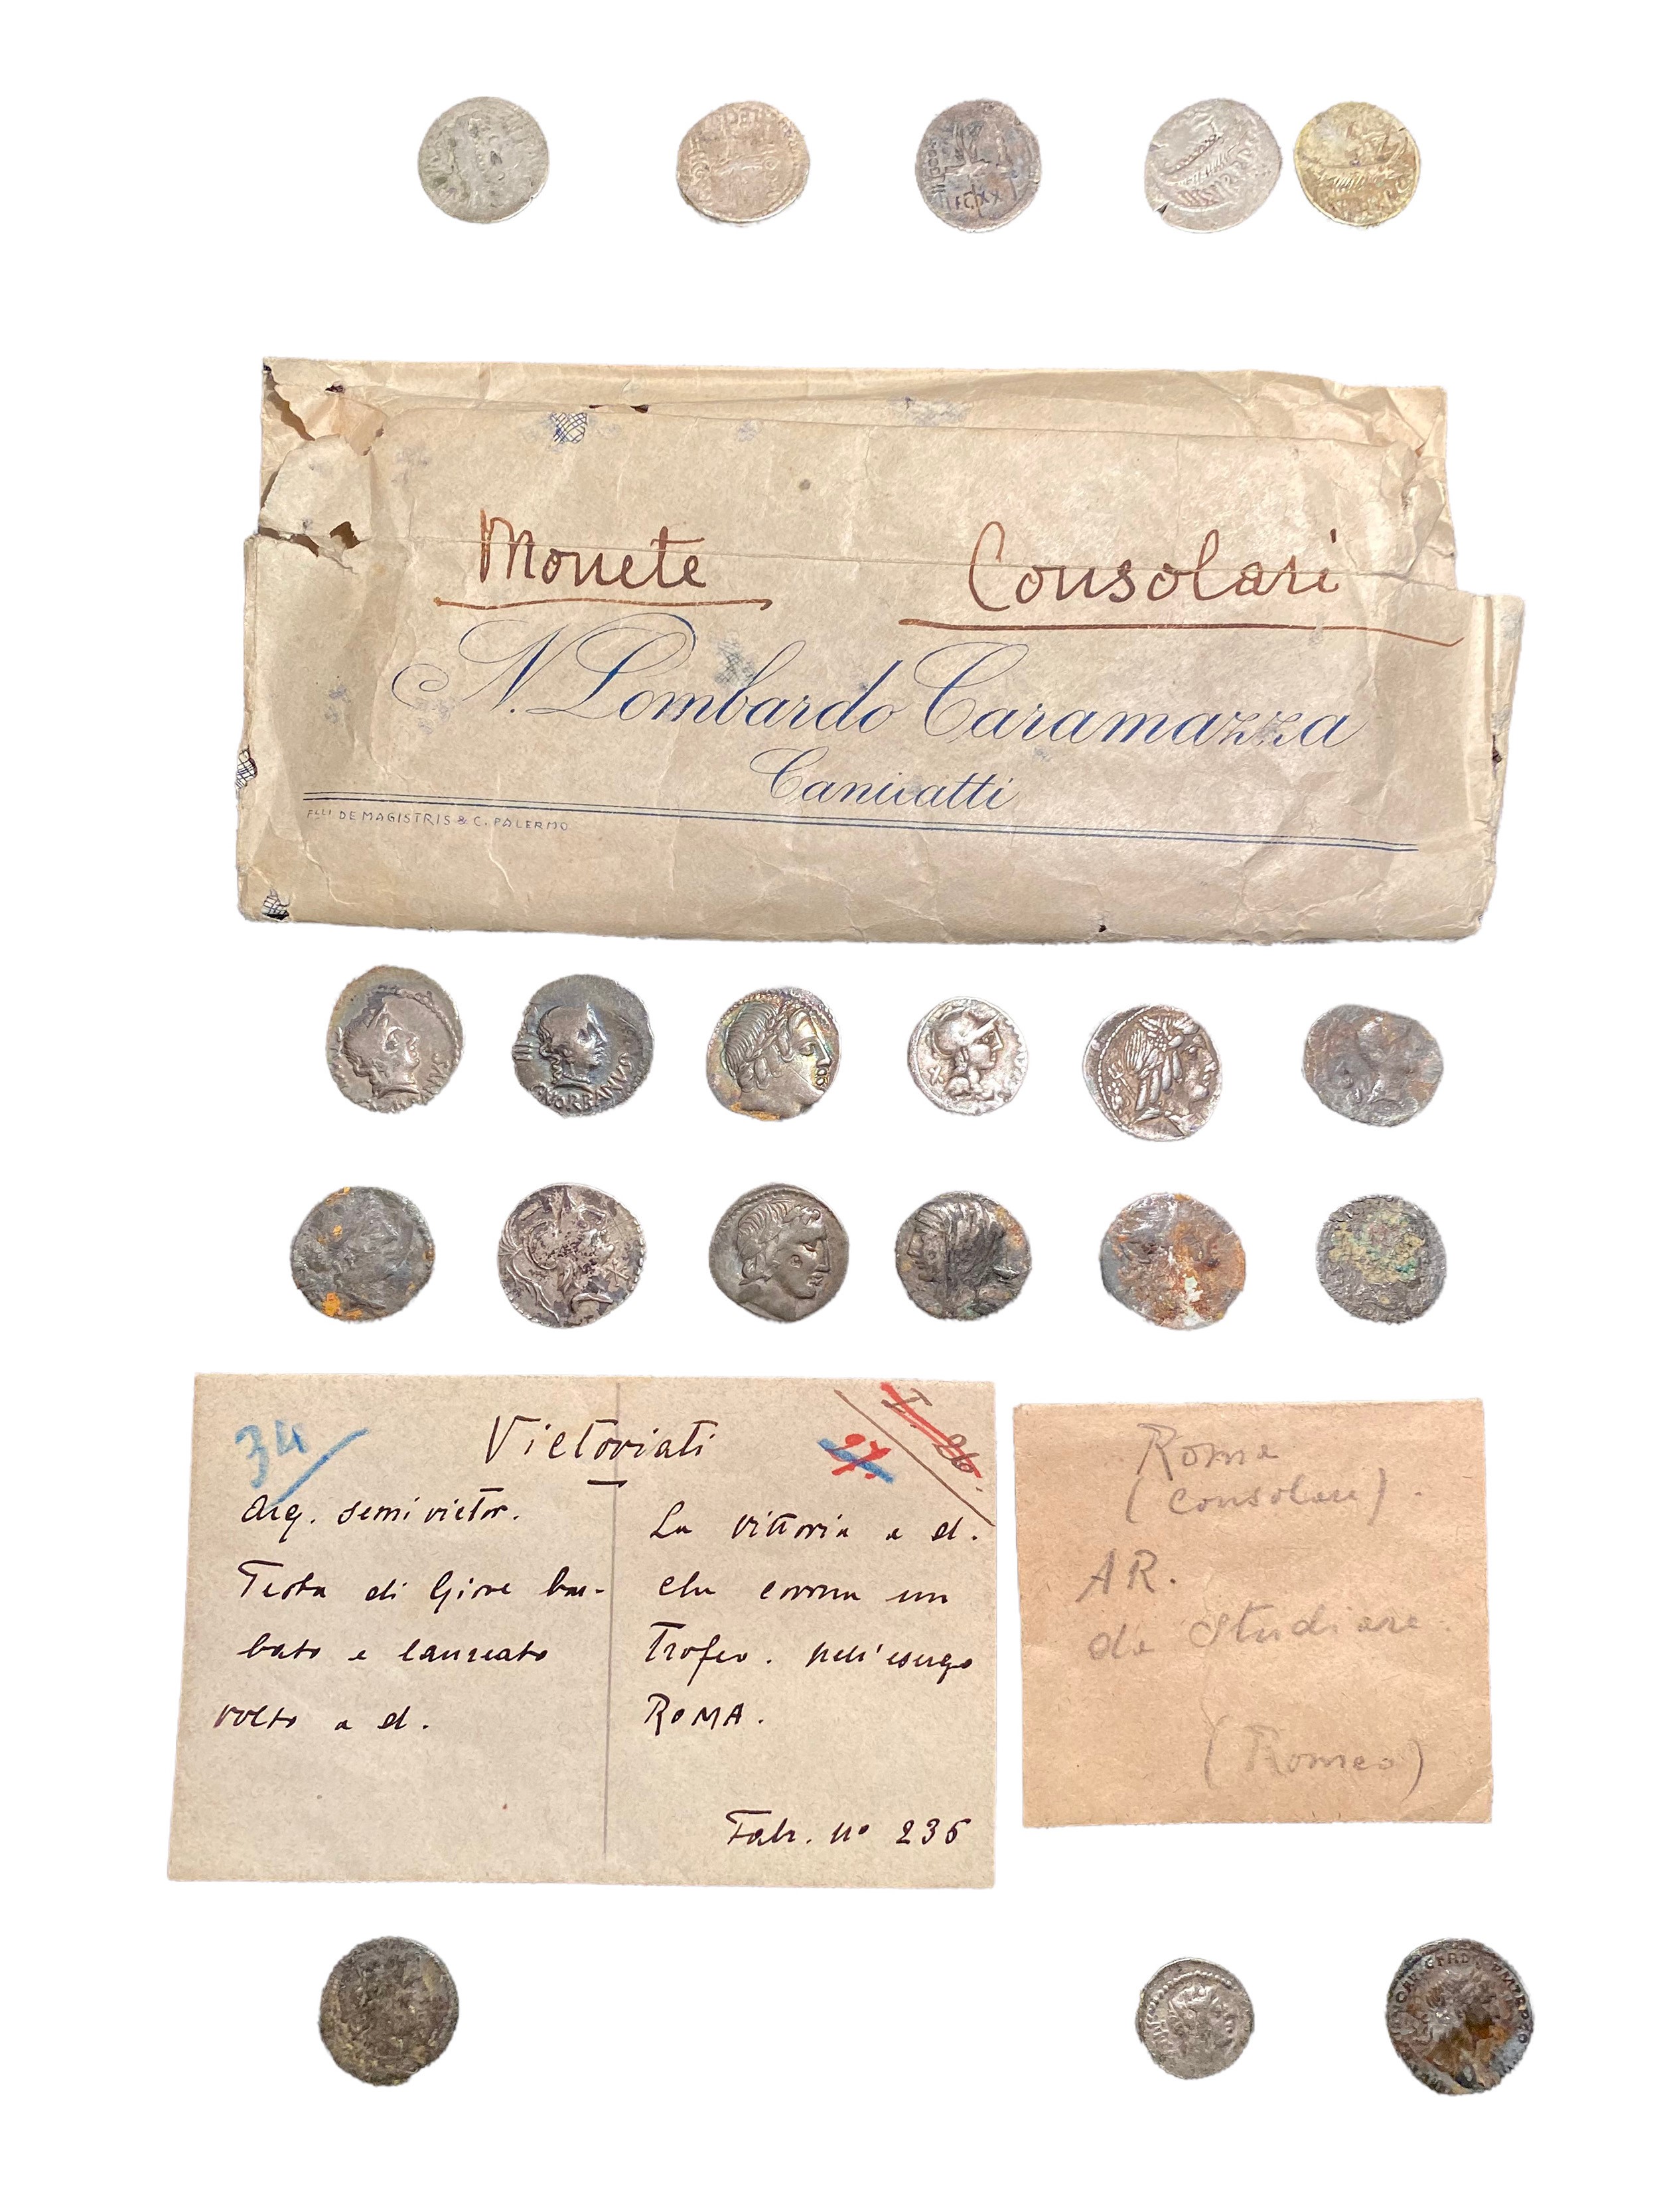 LEG XX
Monete Consolari
N. Lombardo Caramazza
Canicatti
FLLI DE MAGISTRIS & C. PALERMO
NVS
III
C NORBANVS
X
34
Victoriati
27.
I. 26.
Arg. semivictor.
Testa di Giove bar-
bato e laureato
volto a d.
La vittoria a d.
che corona un
Trofeo. nell'esergo
ROMA.
Fabr. nº 235
Roma
(consolare).
AR.
da studiare.
(Romeo)